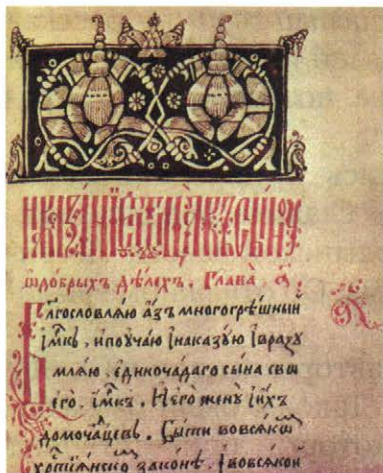 Наказанїе ѿ ѿца къ сыну
ѡ добрыхъ дѣлехъ. Глава̀ а҃.
Блгословляю азъ многогрѣшный
імкъ. ипоучаю інаказую івразу
мляю. единочадаго сына сво
его. імкъ. Иего жену́ іихъ
домочадцевъ. Быти вовсяко
христіянско законѣ. івовсякой